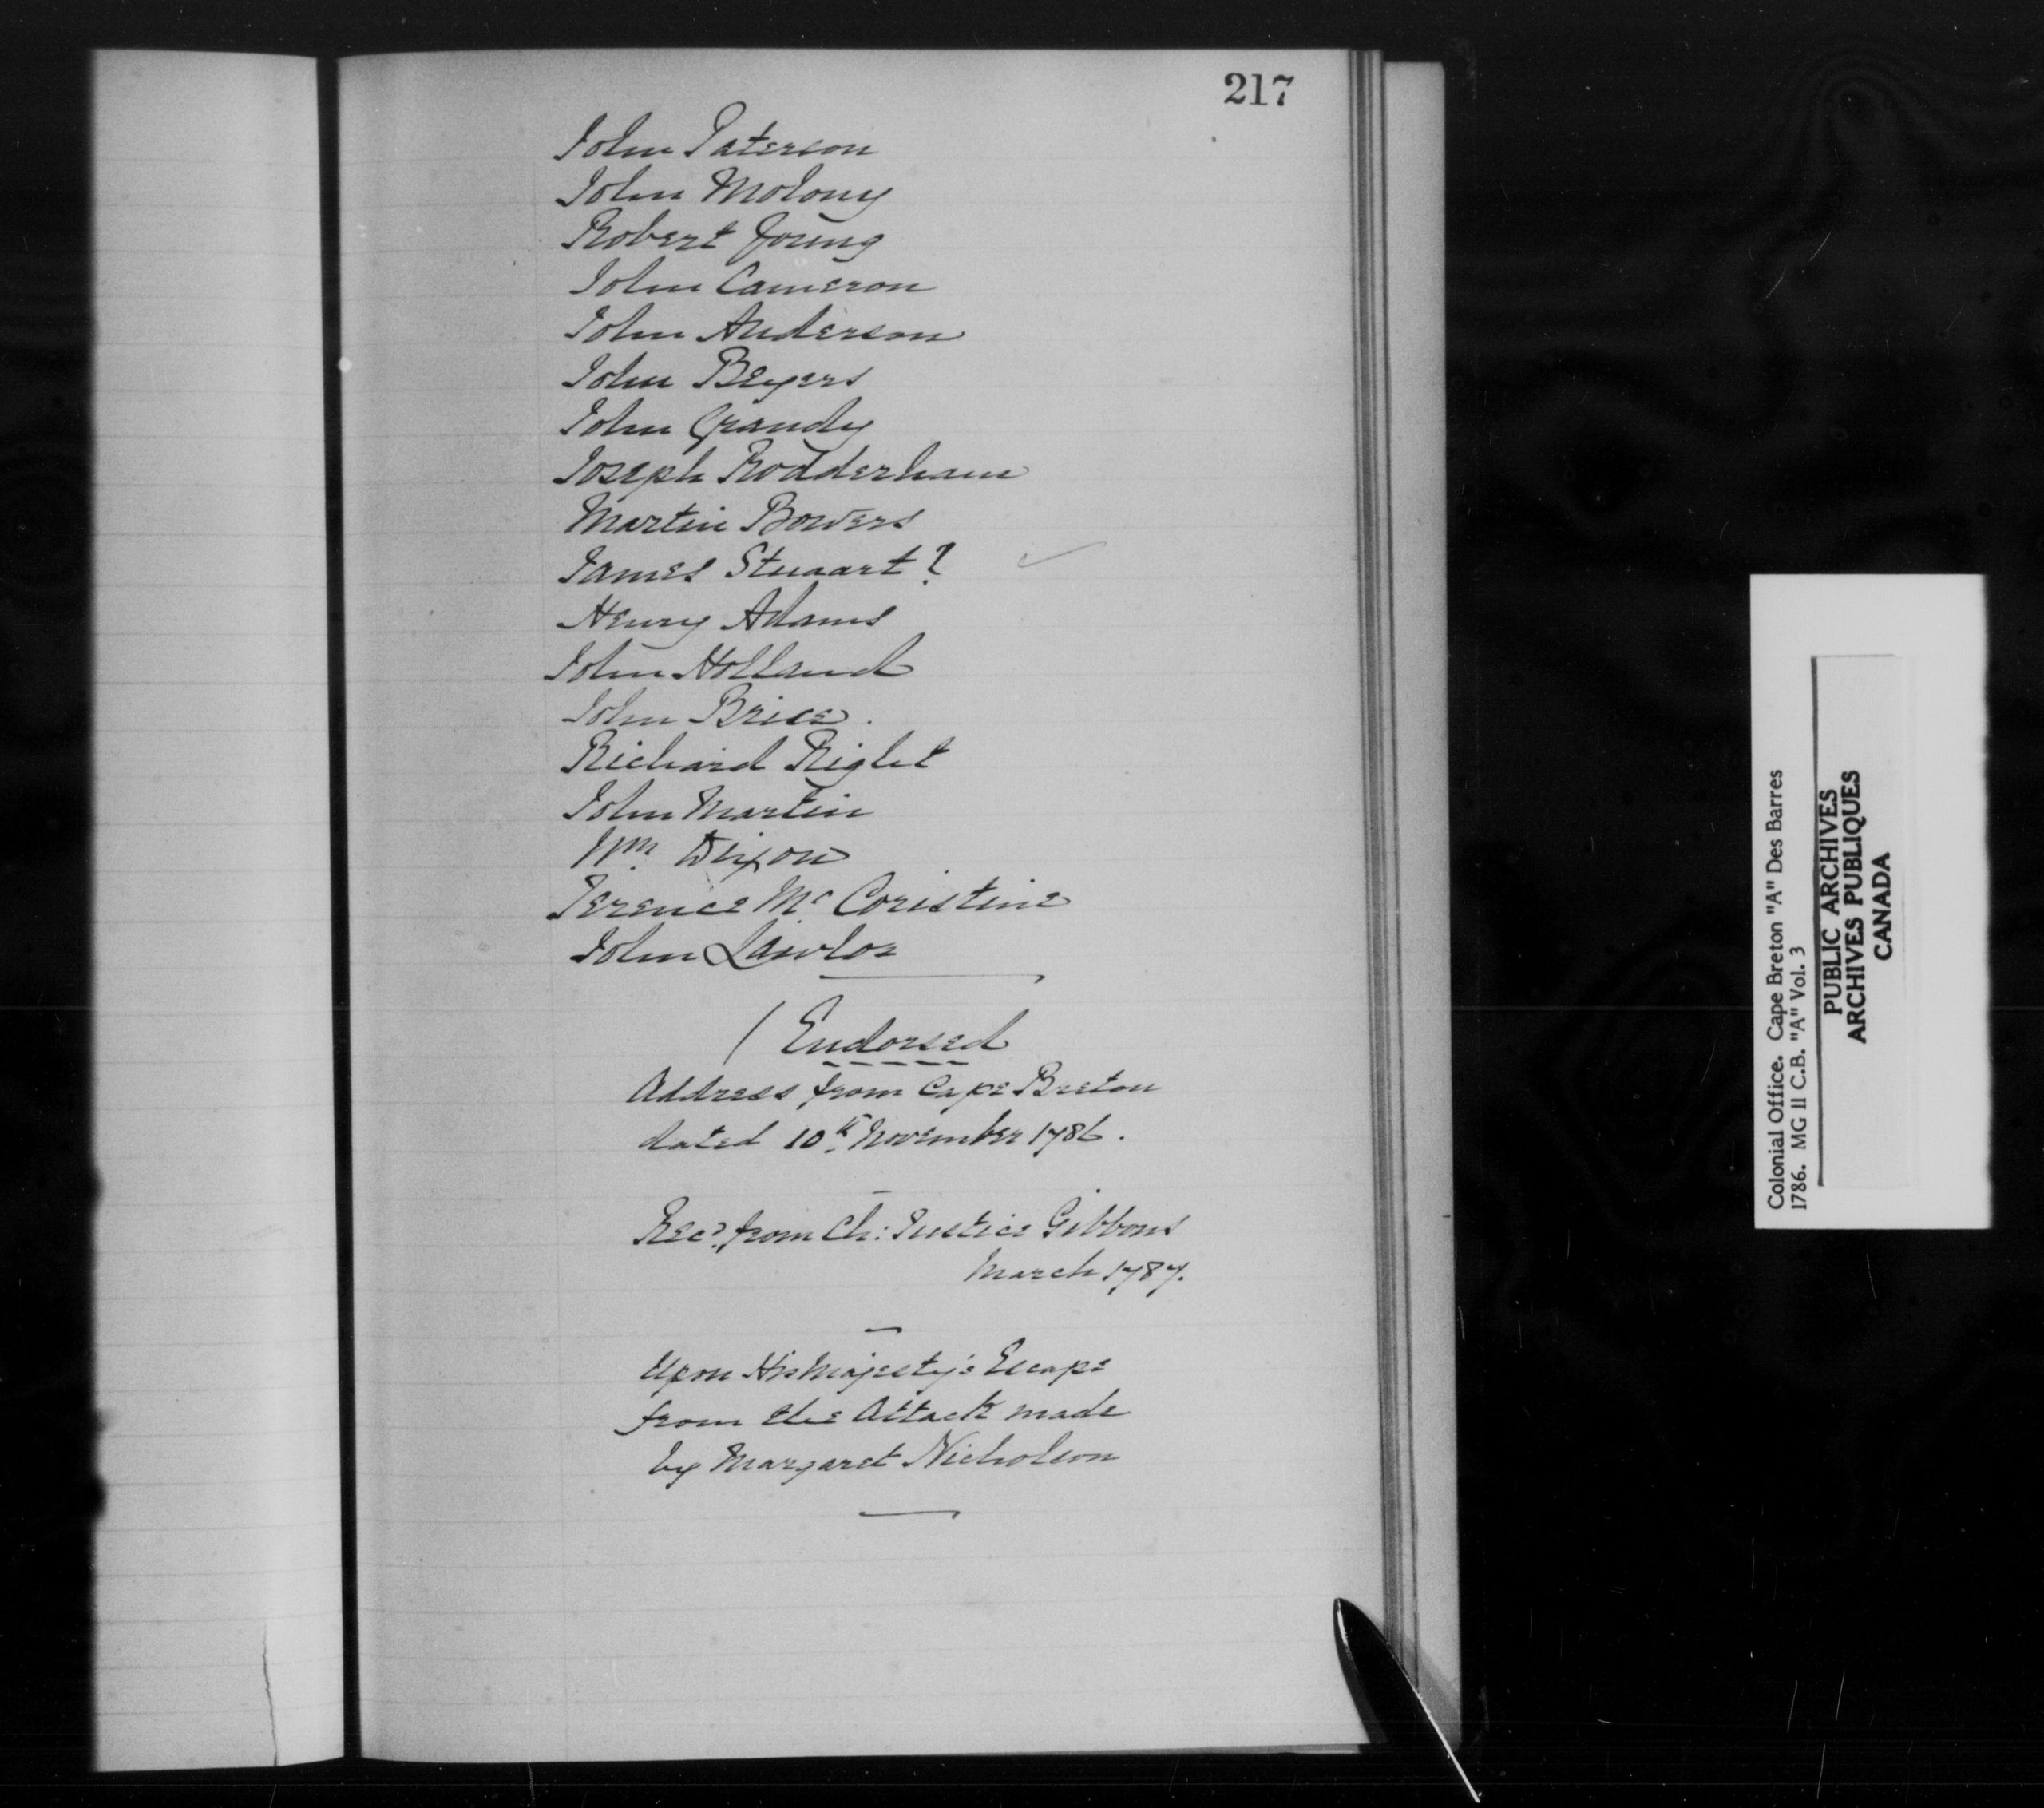 217
John Paterson
John Molony
Robert Young
John Cameron
John Anderson
John Beyers
John Grandy
Joseph Rodderham
Martin Bowers
James Stuaart?
Henry Adams
John Holland
John Brice.
Richard Right
John Martin
Wm Dixon
Terence Mc Coristine
John Lawlor
(Endorsed
Address from Cape Breton
dated 10th November 1786.
Recd. from Ch: Justice Gibbons
March 1787.
Upon His Majesty's Escape
from the Attack made
by Margaret Nicholson
Colonial Office. Cape Breton "A" Des Barres
1786. MG 11 C.B. "A" Vol. 3
PUBLIC ARCHIVES
ARCHIVES PUBLIQUES
CANADA